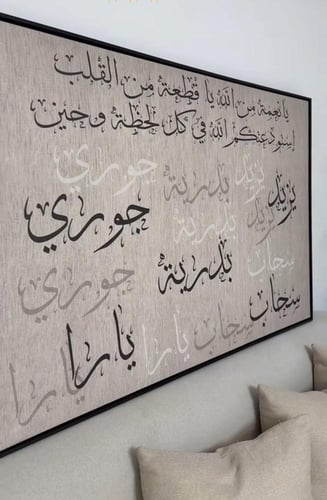 يا نعمة من الله يا قطعة من القلب
إستودعتكم الله في كل لحظة وحين
يزيد بدرية جوري
يزيد بدرية جوري
يزيد بدرية جوري
سحاب بدرية جوري
سحاب سحاب يارا يارا يارا